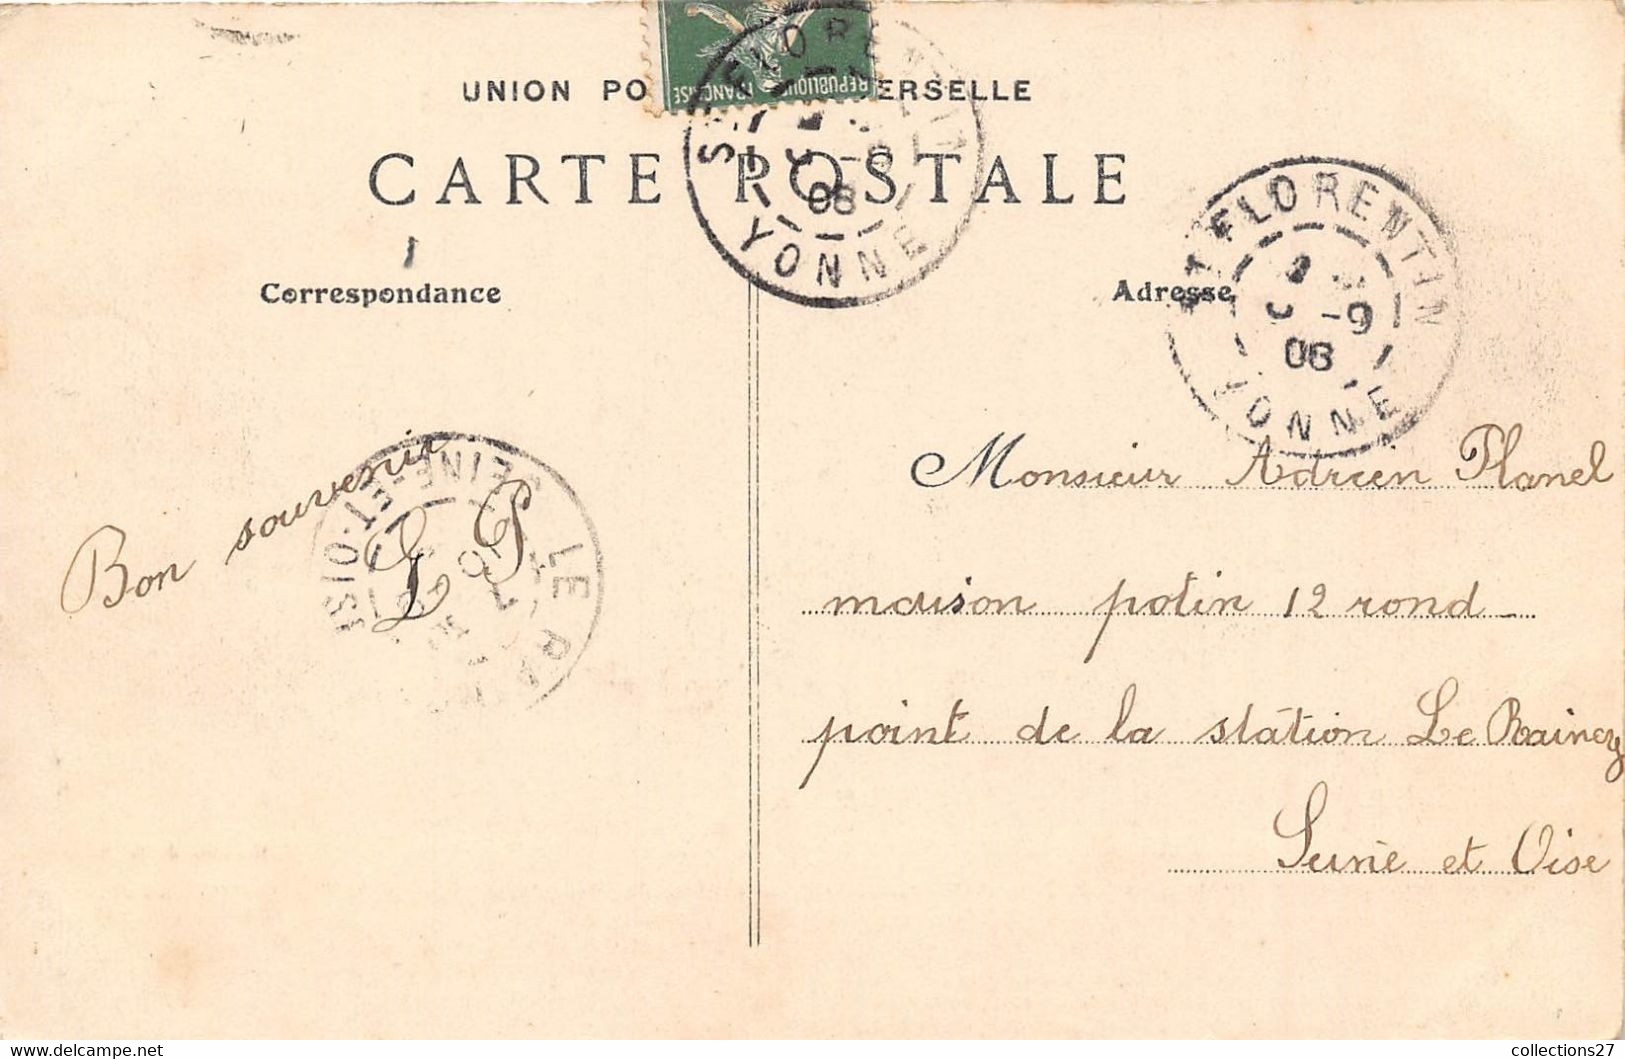 UNION PO ERSELLE
REPUBLIQUE FRANÇAISE
CARTE POSTALE
ST FLORENTIN
08
YONNE
ST FLORENTIN
-9
08
YONNE
Correspondance
Adresse
Bon souvenir
LP
LE RA
SEINE-ET-OISE
Monsieur Adrien Planel
maison potin 12 rond
point de la station Le Raincy
Seine et Oise
collections27